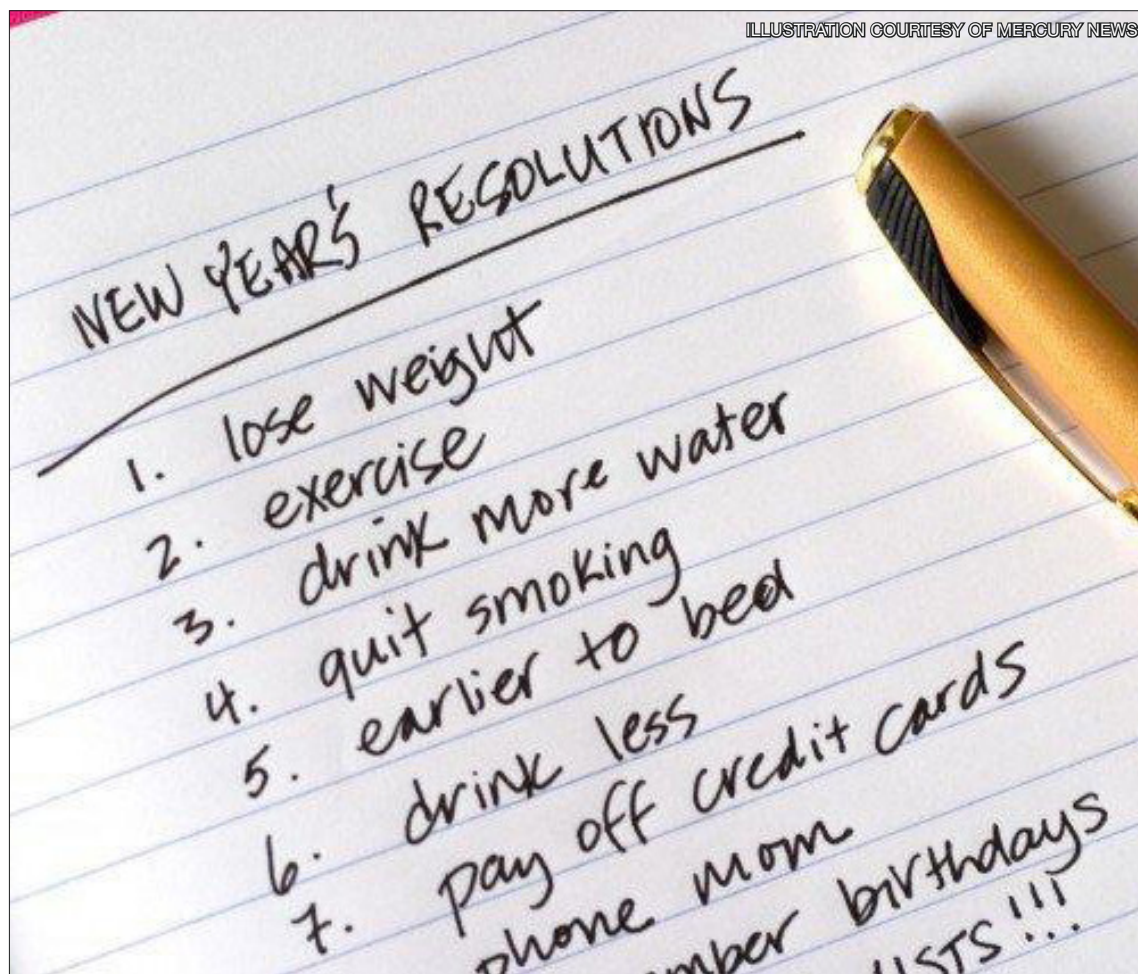 ILLUSTRATION COURTESY OF MERCURY NEWS
NEW YEAR'S RESOLUTIONS
1. lose weight
2. exercise
3. drink more water
4. quit smoking
5. earlier to bed
6. drink less
7. pay off credit cards
phone mom
birthdays